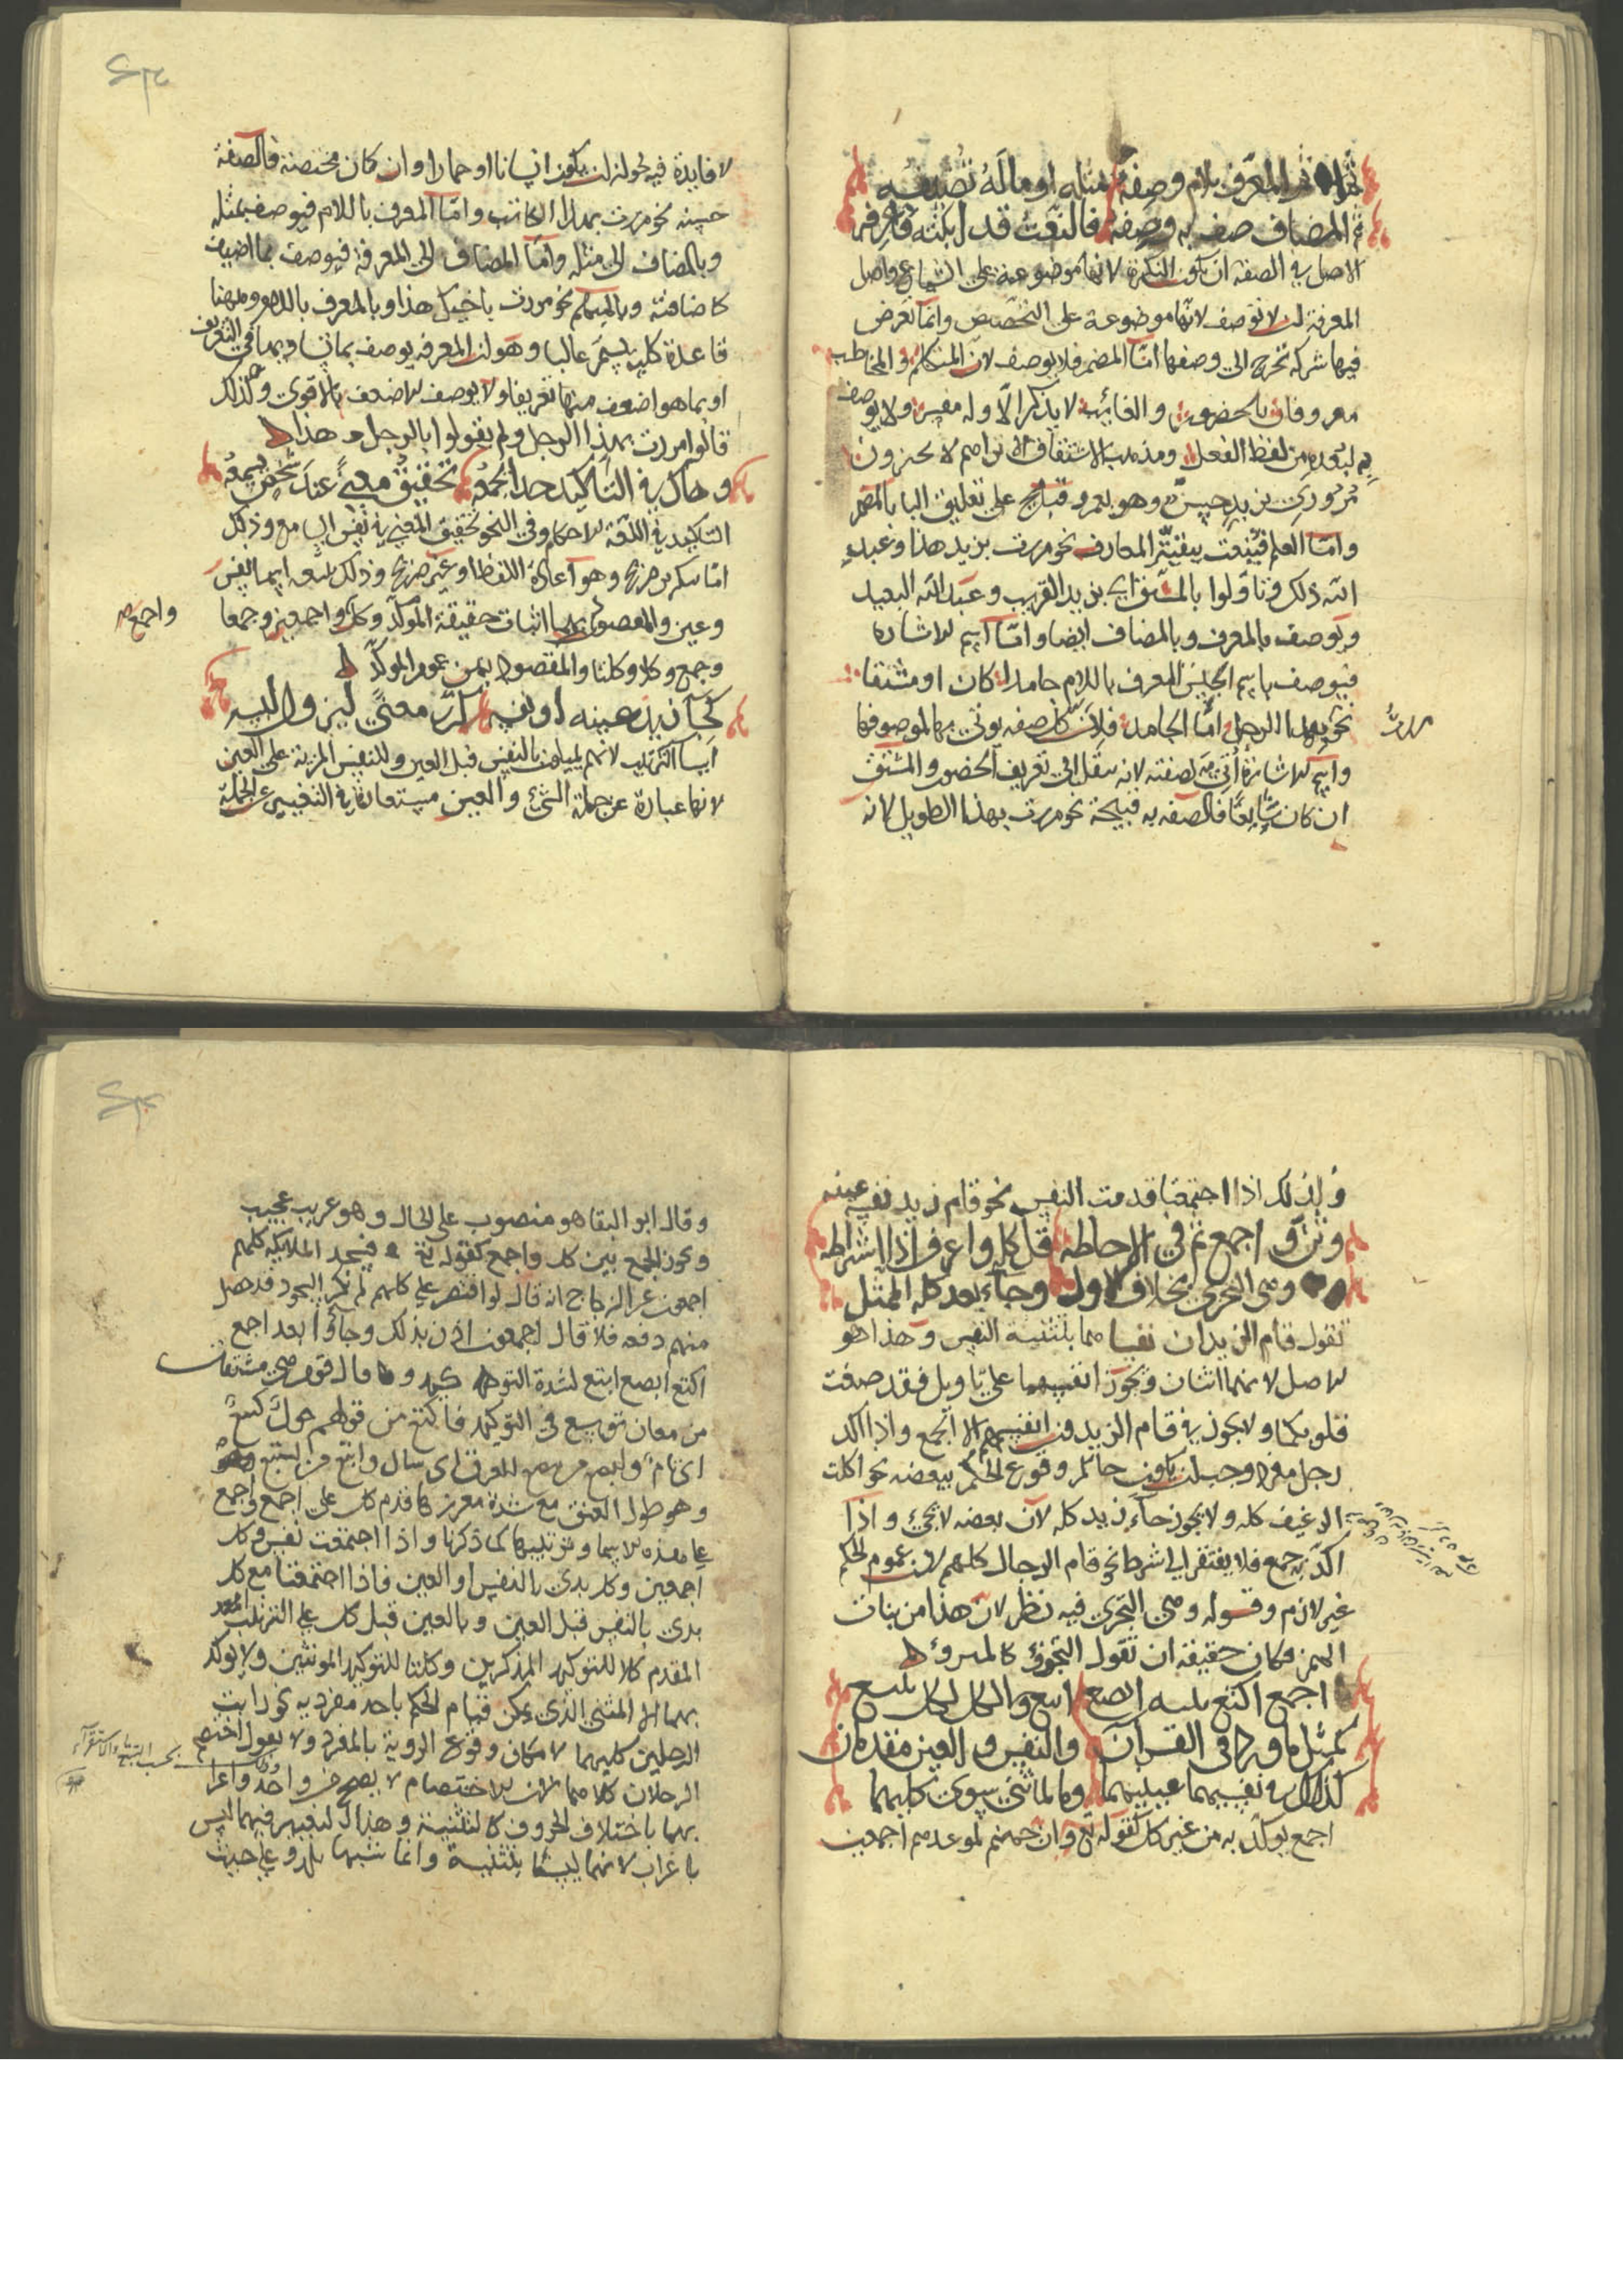 ثم المعرف بلام وصفه بمثله او ماله تضيفه
ثم المضاف صف به وصفه فالنعت قد ابنته فاعرفه
الاصل في الصفة ان تكون النكرة لانها موضوعة على الشياع واصل
المعرفة ان لا توصف لانها موضوعة على التخصيص وانما تعرض
فيها شركة تخرج الى وصفها اما المضمر فلا يوصف لان المتكلم والمخاطب
معروفان بالحضور والغائب لا يذكر الا وله مفسر ولا يوصف
به لبعده من لفظ الفعل ومذهب الاشتقاق الا تراهم لا يجيزون
مروري بزيد حسن وهو بعمرو قبيح على تعليق البا بالمضمر
واما العلم فينعت ببقية المعارف نحو مررت بزيد هذا وعبد
الله ذلك وتاولوا بالمشتق اي بزيد القريب وعبد الله البعيد
ويوصف بالمعرف وبالمضاف ايضا واما اسم الاشارة
فيوصف باسم الجنس المعرف باللام جامدا كان او مشتقا
نحو بهذا الرجل اما الجامد فلان كل صفة يوتى بها لموصوفها
واسم الاشارة اتي به لصفته لانه ينقل الى تعريف الحضور والمشتق
ان كان شايعا فالصفة به قبيحة نحو مررت بهذا الطويل لانه
لا فايدة فيه لجواز ان يكون انسانا او حمارا وان كان مختصة فالصفة
حسنة نحو مررت بهذا الكاتب واما المعرف باللام فيوصف بمثله
وبالمضاف الى مثله واما المضاف الى المعرفة فيوصف بما اضيف
كاضافته وبالمبهم نحو مررت باخيك هذا وبالمعرف باللام وههنا
قاعدة كلية يستمر غالبا وهو ان المعرفة يوصف بما يساويها في التعريف
او بما هو اضعف منها تعريفا ولا يوصف الاضعف بالاقوى ولذلك
قالوا مررت بهذا الرجل ولم يقولوا بالرجل هذا
وهاك في التاكيد حدا يجمعه تحقيق معنى عند شخص يسمعه
التاكيد في اللغة الاحكام وفي النحو تحقيق المعنى في نفس السامع وذلك
اما بتكرير صريح وهو اعادة اللفظ او غير صريح وذلك تسعة اسما نفس
وعين والمقصود بهما اثبات حقيقة الموكد وكل واجمعون وجمعا
واجمع
وجمع وكلا وكلتا والمقصود بهن عموم الموكد
كجا زيد عينه او نفسه كرر معنى ليزول اللبس
اسا الترتيب لانهم يبداون بالنفس قبل العين وللنفس المزية على العين
لانها عبارة عن جملة الشيء والعين مستعارة في التعبير عن الجملة
ولذلك اذا اجتمعا قدمت النفس نحو قام زيد نفسه عينه
وثن او اجمع ثم في الاحاطة قل كل واعرف اذا اشتراطه
وهي التجزي بخلاف الاول وجاء بعد كله الممثل
تقول قام الزيدان نفساهما بتثنية النفس وهذا هو
الاصل لانهما اثنان ويجوز انفسهما على تاويل فقد صغت
قلوبكما ولا يجوز في قام الزيدون انفسهم الا الجمع واذا اكد
رجل مفرد وجب ان يكون جائز وقوع الحكم ببعضه نحو اكلت
الرغيف كله ولا يجوز جاء زيد كله لان بعضه لا يجيء واذا
اكد به جمع فلا يفتقر الى شرط نحو قام الرجال كلهم لان عموم الحكم
غير لازم وقوله وهي التجزي فيه نظر لان هذا من بنات
الهمز فكان حقيقه ان تقول التجزؤ كالهزؤ
اجمع اكتع يليه ابصع ابتع والكل لكل يتبع
كمثل ما ورد في القران والنفس والعين مقدمان
كذاك في نفسيهما عينيهما وما لما ثني سوى كليهما
اجمع يوكد به من غير كل كقوله تع وان جهنم لموعدهم اجمعين
وقال ابو البقا هو منصوب على الحال وهو غريب عجيب
ويجوز الجمع بين كل واجمع كقوله تع فسجد الملايكة كلهم
اجمعون عن الزجاج انه قال لو اقتصر على كلهم لم ينكر السجود قد حصل
منهم دفعة فلما قال اجمعون اذن بذلك وجاؤا بعد اجمع
اكتع ابصع ابتع لشدة التوكيد وقال قوم هي مشتقات
من معان توسع في التوكيد فاكتع من قولهم حول كتيع
اي تام وابصع من بصع العرق اي سال وابتع من البتع وهو
وهو طول العنق مع شدة مغرز كما قدم كل على اجمع واجمع
على هذه الاسما وترتيبها كما ذكرنا واذا اجتمعت نفس وكل
اجمعين وكل بدي بالنفس او العين فاذا اجتمعتا مع كل
بدي بالنفس قبل العين وبالعين قبل كل على الترتيب
المقدم كلا للتوكيد المذكرين وكلتا للتوكيد المونثين ولا يوكد
بهما الا المثنى الذي يمكن قيام الحكم باحد مفرديه كرايت
الرجلين كليهما لامكان وقوع الروية بالمفرد ولا يقول اختصم
الرجلان كلاهما لان الاختصام لا يصح من واحد واعرا
بهما باختلاف الحروف كالتثنية وهذا التغيير فيهما ليس
باعراب لانهما ليستا بتثنية وانما شبها بلدى على حيث